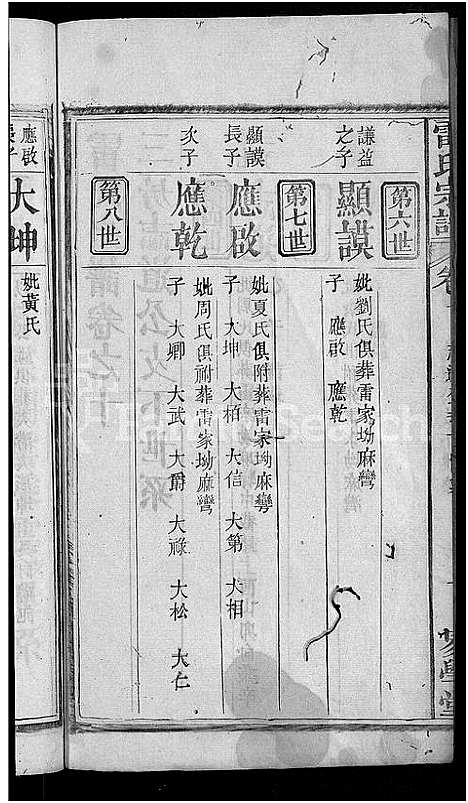 雷氏宗譜
卷
第六世
謙益之子
顯謨
妣劉氏俱葬雷家坳麻彎
子 應啟 應乾
第七世
顯謨長子
應啟
妣夏氏俱附葬雷家坳麻彎
子 大坤 大栢 大信 大第 大相
次子
應乾
妣周氏俱祔葬雷家坳麻灣
子 大卿 大武 大爵 大祿 大松 大仁
第八世
應啟長子
大坤
妣黃氏